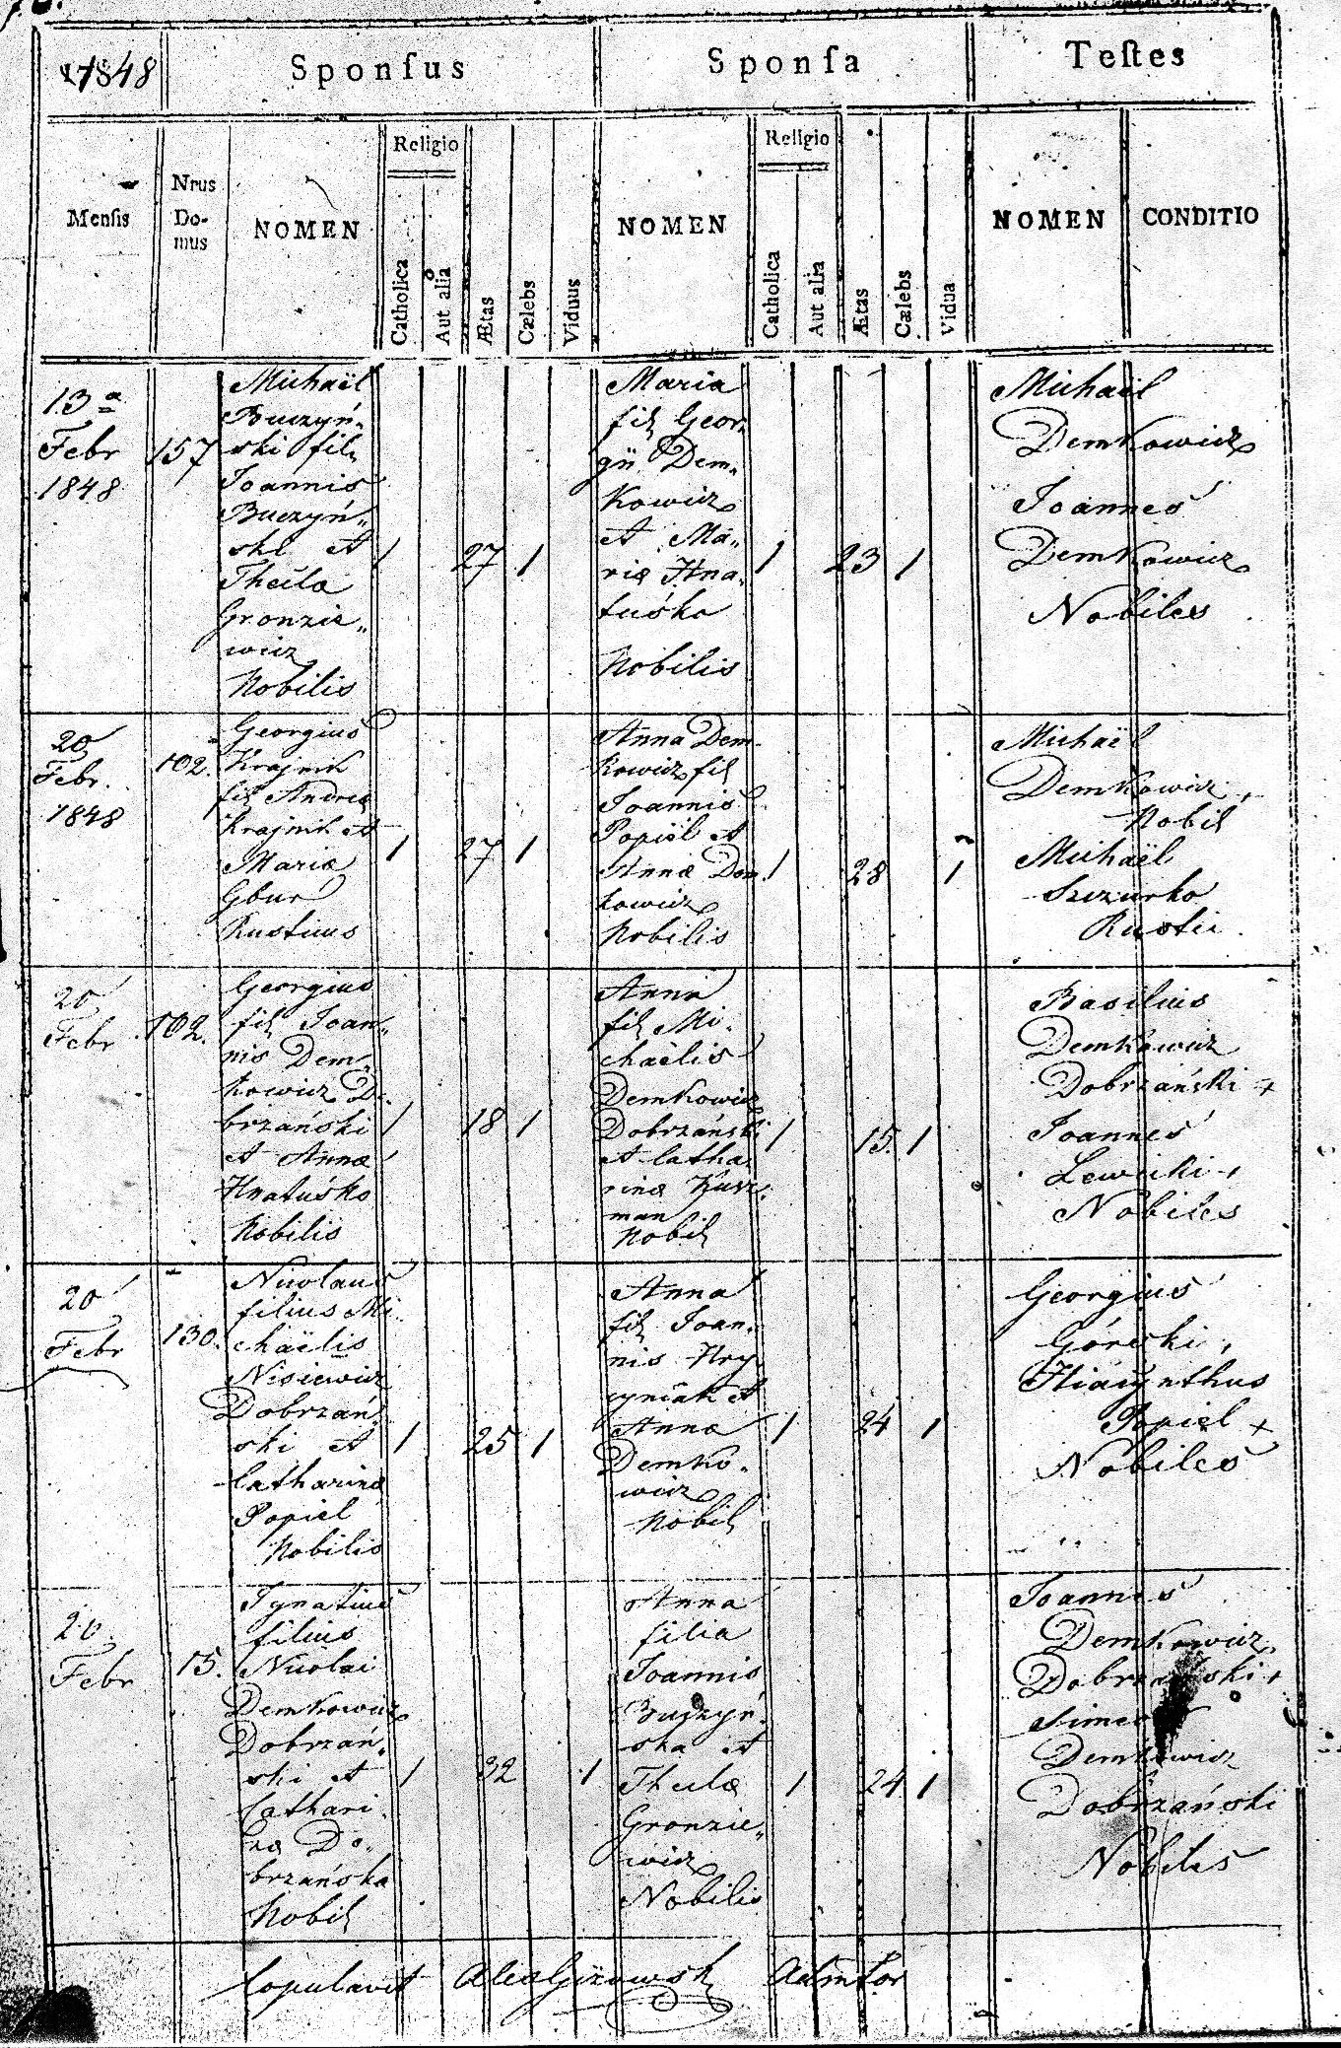 1848
Sponsus
Sponsa
Testes
Mensis
Nrus
Do-
mus
NOMEN
Religio
Catholica
Aut alia
Ætas
Cælebs
Viduus
NOMEN
Religio
Catholica
Aut alia
Ætas
Cælebs
Vidua
NOMEN
CONDITIO
13a
Febr
1848
157
Michaël
Buczyń-
ski fil
Joannis
Buczyń-
ski et
Thecla
Gronzie-
wicz
Nobilis
1
27
1
Maria
fil Geor-
gii Dem-
kowicz
et Ma-
riæ Hna-
tuśko
Nobilis
1
23
1
Michaël
Demkowicz
Joannes
Demkowicz
Nobiles
20
Febr.
1848
102.
Georgius
Krajnik
fil Andreæ
Krajnik et
Mariæ
Gbur
Rusticus
1
27
1
Anna Dem-
kowicz fil
Joannis
Popiel et
Annæ Dem-
kowicz
Nobilis
1
28
1
Michaël
Demkowicz,
Nobil
Michaël
Szczurko
Rustic
20
Febr
102.
Georgius
fil Joan-
nis Dem-
kowicz Do-
brzański
et Annæ
Hnatuśko
Nobilis
1
18
1
Anna
fil Mi-
chaëlis
Demkowicz
Dobrzański
et Catha-
rinæ Kusz-
man
Nobil
1
15.
1
Basilius
Demkowicz
Dobrzański +
Joannes
Lewicki +
Nobiles
20
Febr
130.
Nicolaus
filius Mi-
chaëlis
Nisiewicz
Dobrzań-
ski et
Catharinæ
Popiel
Nobilis
1
25
1
Anna
fil Joan-
nis Hry-
cyniak et
Annæ
Demko-
wicz
Nobil
1
24
1
Georgius
Górecki,
Hiacynthus
Popiel +
Nobiles
20.
Febr
15.
Ignatius
filius
Nicolai
Demkowicz
Dobrzań-
ski et
Cathari-
næ Do-
brzańska
Nobil
1
32
1
Anna
filia
Joannis
Buczyń-
ska et
Theclæ
Gronzie-
wicz
Nobilis
1
24
1
Joannes
Demkowicz
Dobrzański +
Simeon
Demkowicz
Dobrzański
Nobiles
Copulavit